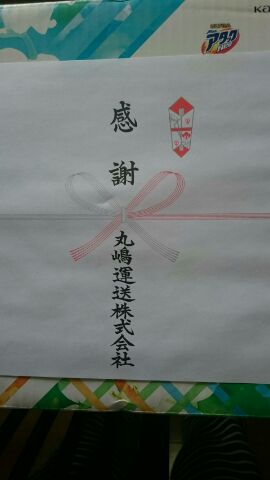 感謝
丸嶋運送株式会社
アタック